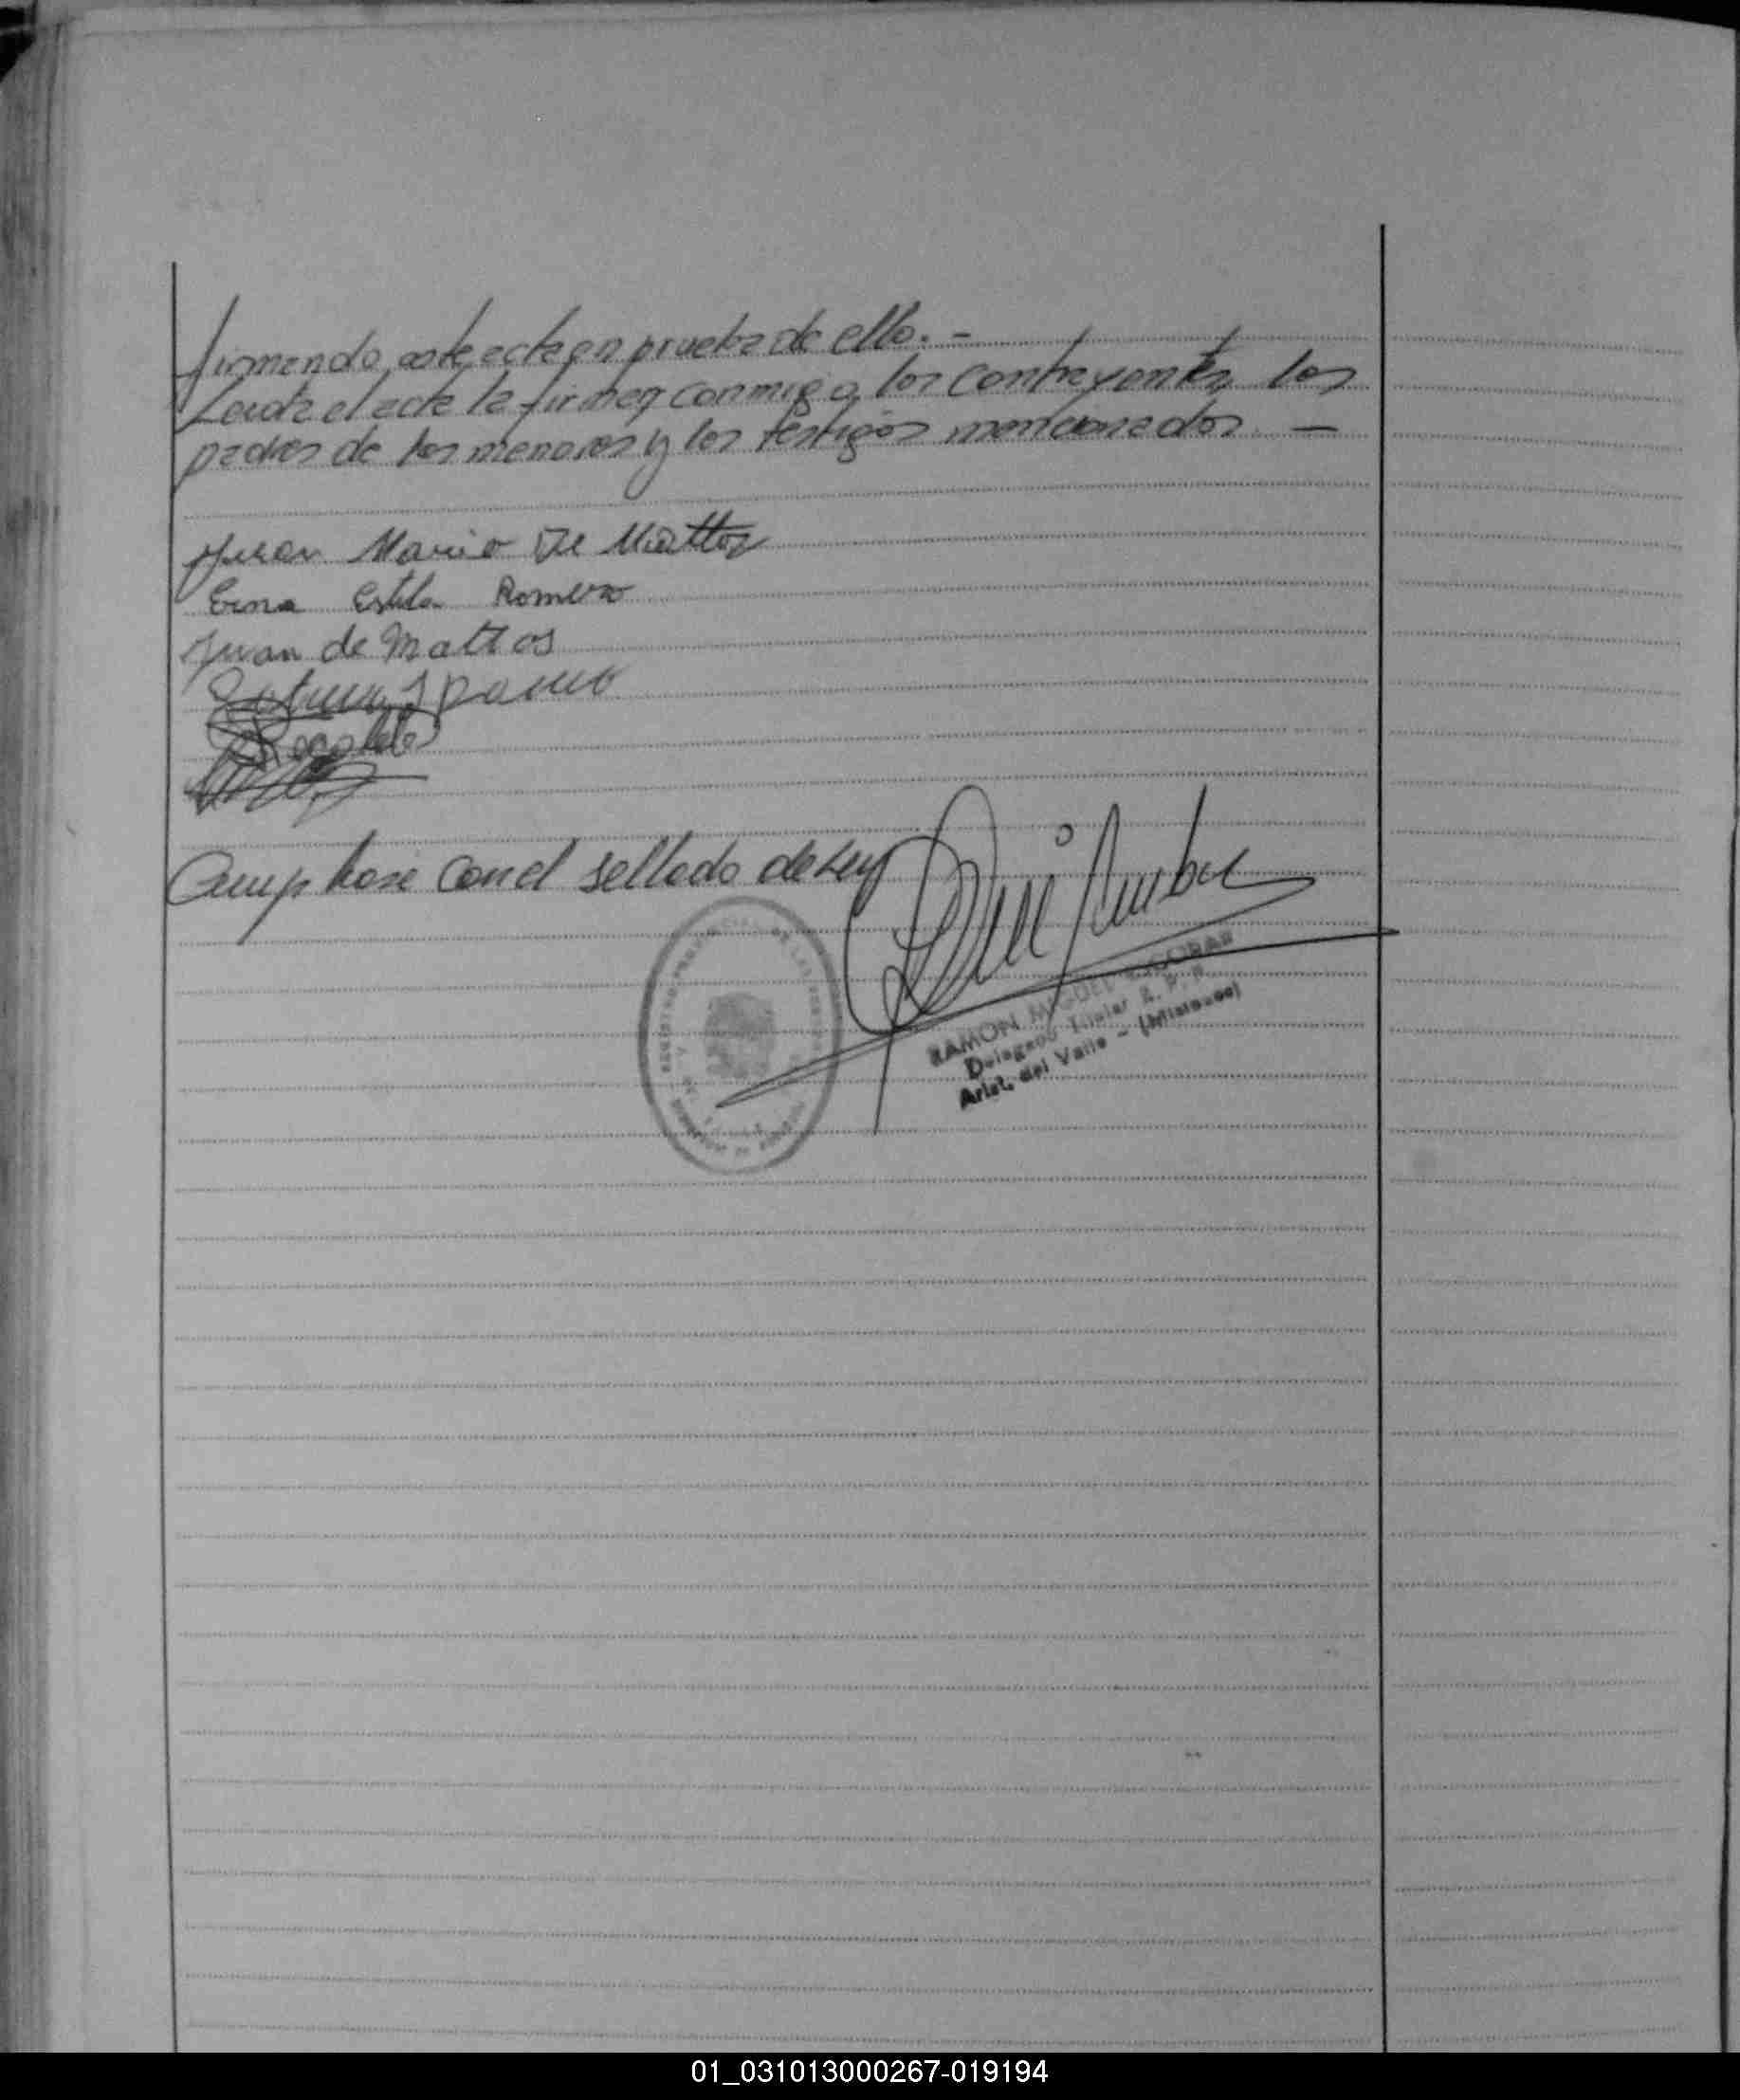 firmando este acta en prueba de ello.-
Leida el acta la firman conmigo los contrayentes, los
padres de los menores y los testigos mencionados. —
Juan Mario De Mattos
Erna Estela Romero
Juan de Mattos
Cumplase con el sellado de Ley
RAMON MIGUEL ESCOBAR
Delegado Titular R. P. P.
Arist. del Valle - (Misiones)
01_031013000267-019194